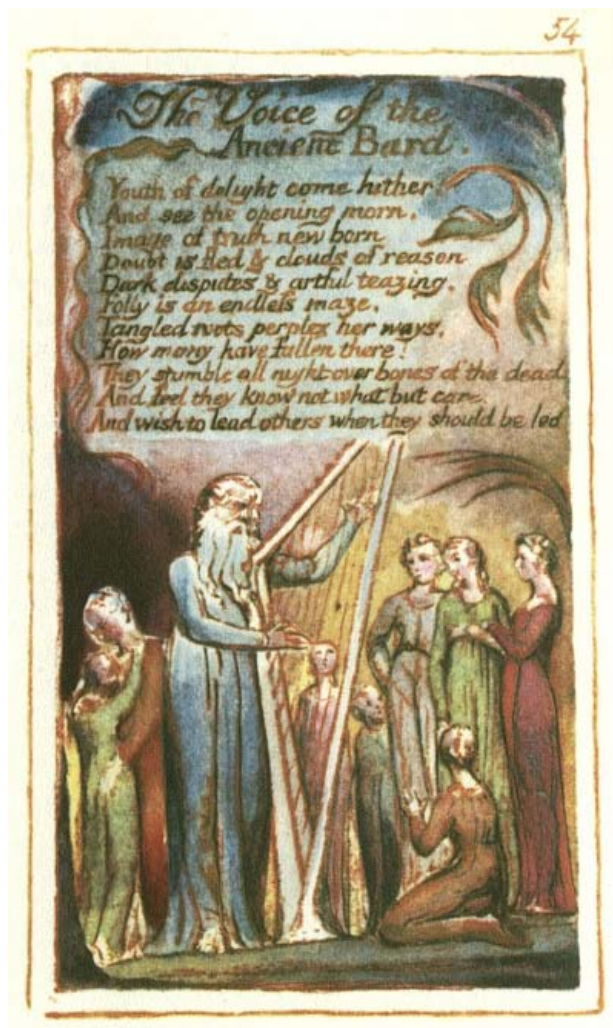 54
The Voice of the
Ancient Bard.
Youth of delight come hither:
And see the opening morn,
Image of truth new born
Doubt is fled & clouds of reason
Dark disputes & artful teazing.
Folly is an endless maze,
Tangled roots perplex her ways,
How many have fallen there!
They stumble all night over bones of the dead
And feel they know not what but care
And wish to lead others when they should be led